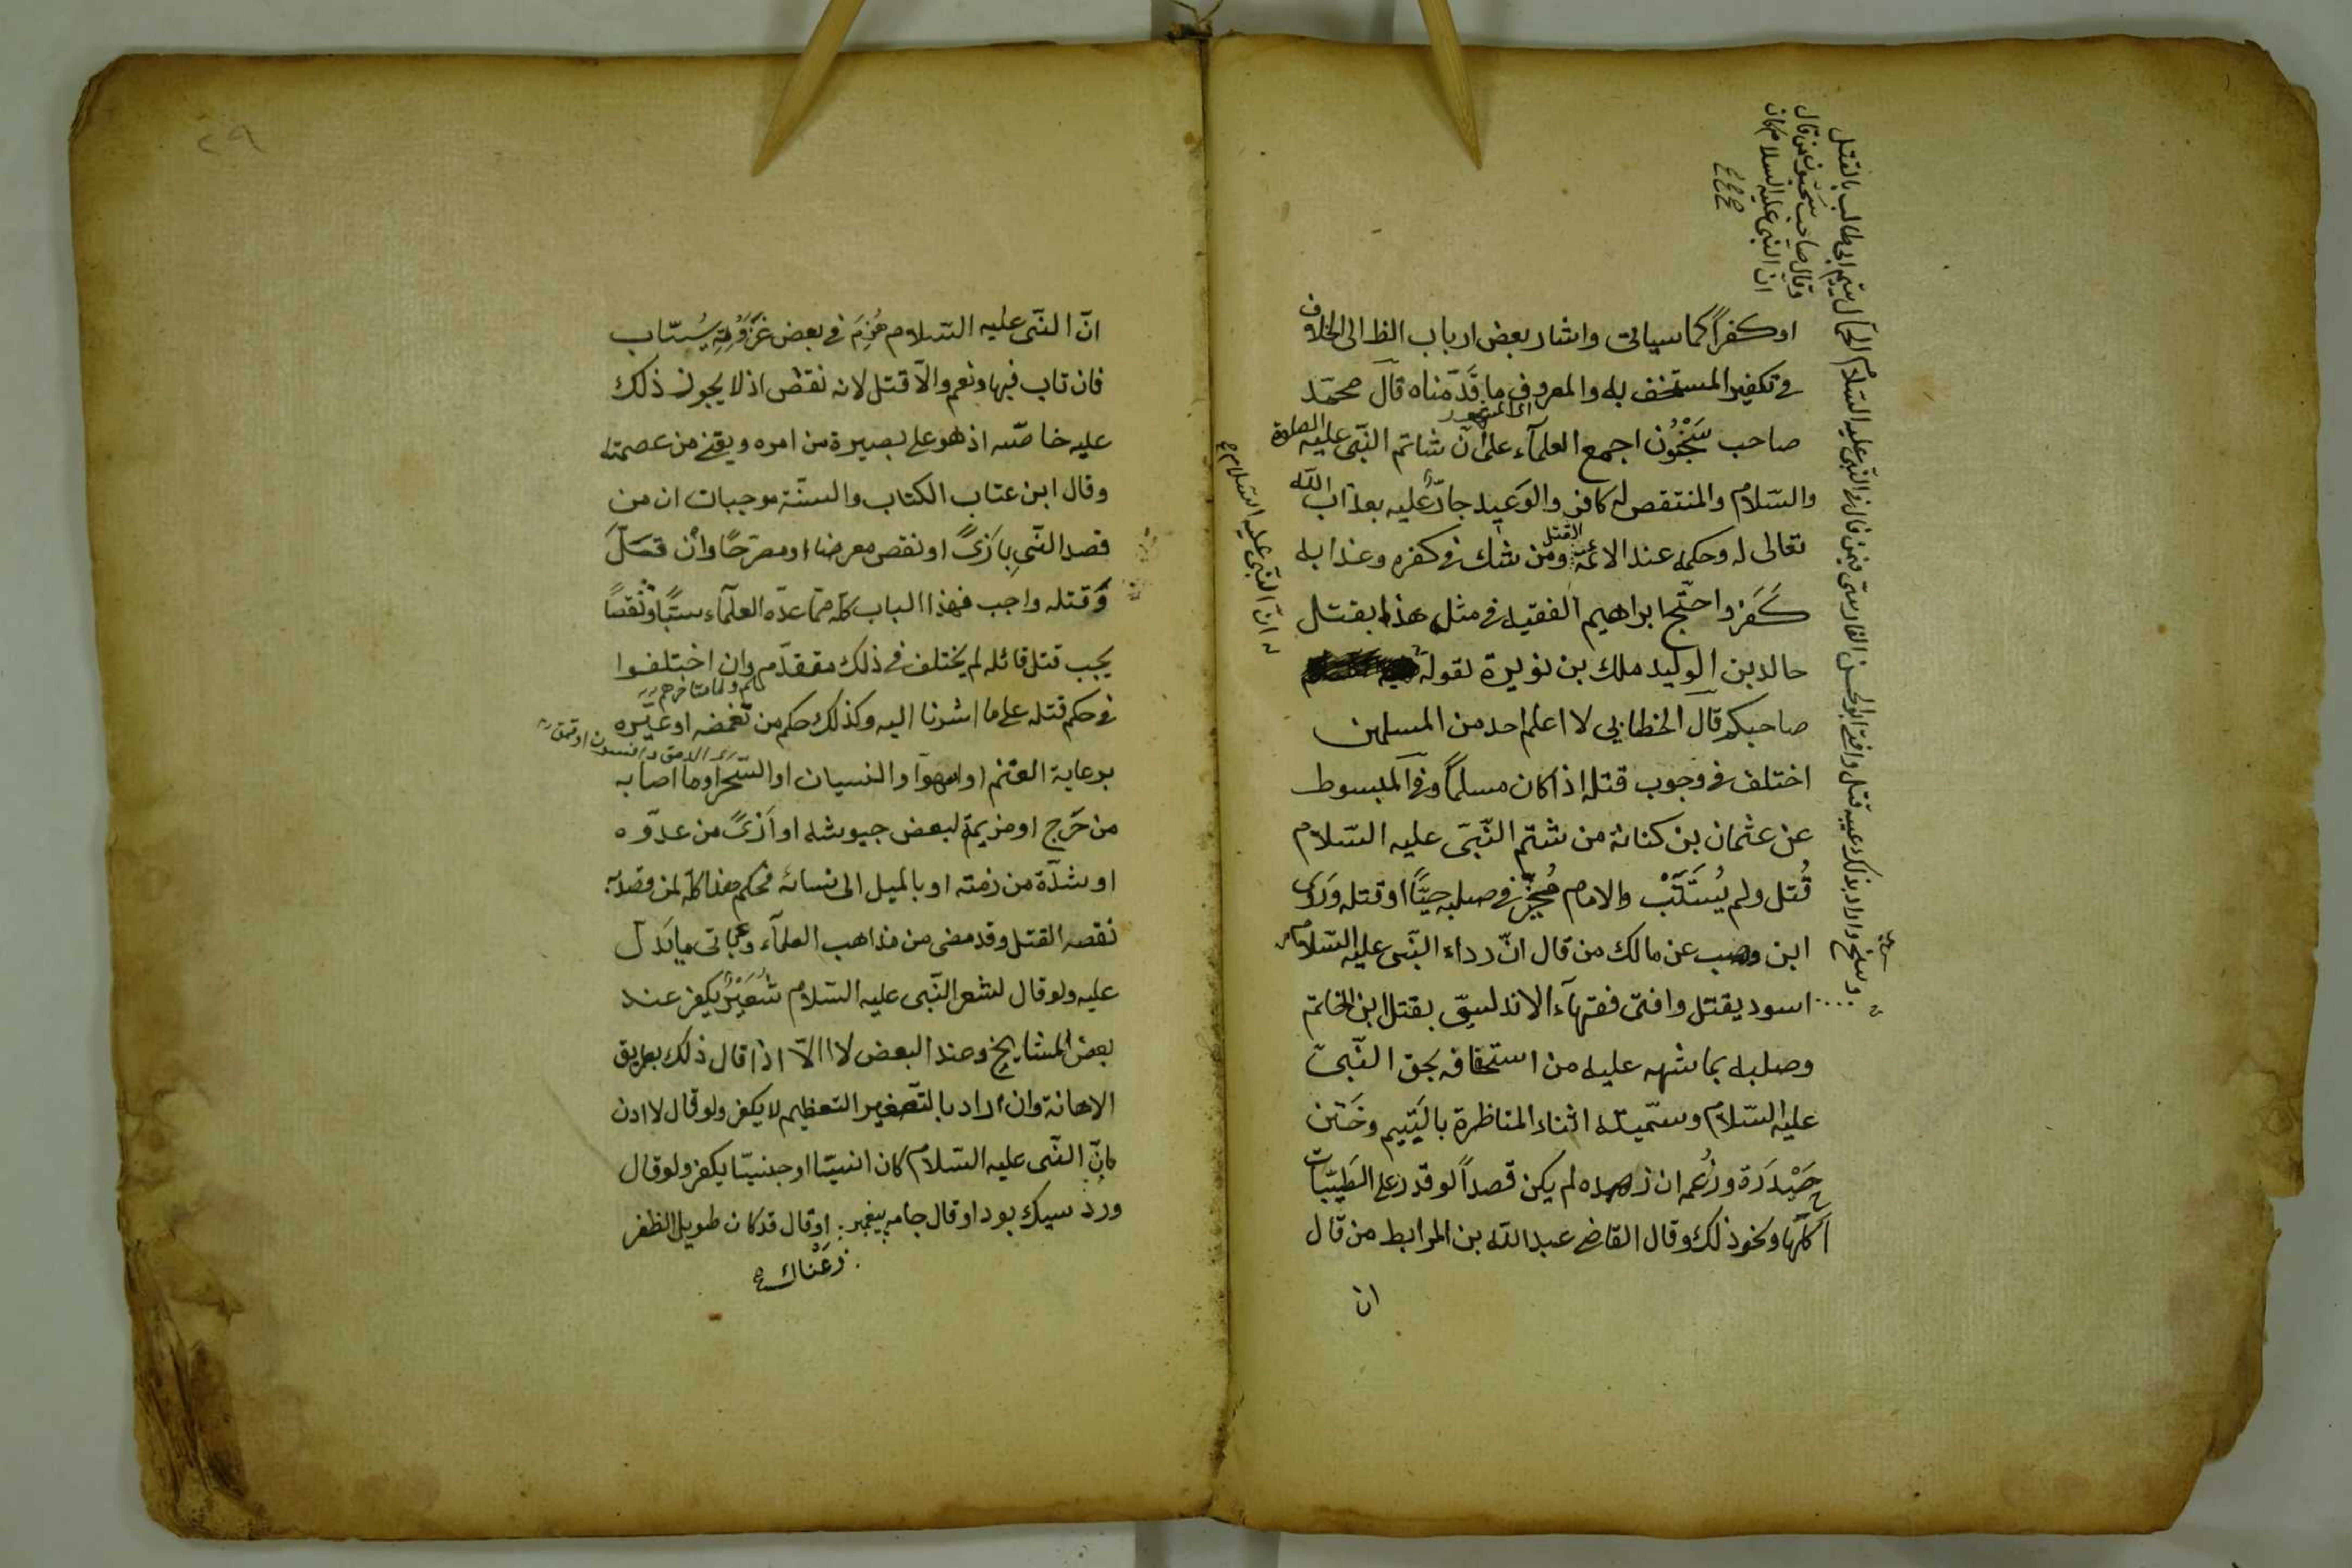 او كفراً كما سياتى واشار بعض ارباب الظ الى الخلاف
فى تكفير المستخف به والمعروف ما قَدّمناه قال محمّد
اى المشهور
صاحب سَحْنُون اجمع العلمآء على ان شاتم النّبى عليه الصلوة
والسّلام والمنتقص له كافر والوعيد جارٌ عليه بعذاب اللّه
تعالى له وحكمه عند الائمّة القتل ومن شك فى كفره وعذابه
كَفَر واحتجّ ابراهيم الفقيه فى مثل هذا بقتل
خالد بن الوليد ملك بن نويرة لقوله
صاحبكم قال الخطابي لا اعلم احد من المسلمين
اختلف فى وجوب قتله اذا كان مسلماً وفى المبسوط
عن عثمان بن كنانة من شتم النّبىّ عليه السّلام
قُتل ولم يُستَتَبْ والامام مُخيّر فى صلبه حيّاً او قتله وروى
ابن وهب عن مالك من قال انّ رداء النّبى عليه السّلام
اسود يقتل وافتى فقهآء الاندلسيّ بقتل ابن الخاتم
وصلبه بما شهه عليه من استخفافه بحق النّبىّ
عليه السّلام وسمّيته اثناء المناظرة باليَتيم وخَتَن
حَيْدَرَة وزُعمه ان زهده لم يكن قصداً لو قدر على الطَيّبات
اكلها ونحو ذلك وقال القاضى عبد اللّه بن المرابط من قال
ان
وقال صاحب سَحنون من قال
انّ النّبى عليه السلام كان
انّ النّبى عليه السّلام
وافتى ابو الحسن القارسىّ فيمن قال فى النّبى عليه السّلام الحمّال يتيم ابى طالب بالقتل
٢٩
انّ النّبى عليه السّلام هُزِمَ فى بعض غَزَوْتِهِ يُستاب
فان تاب فبها ونعم والّا قتل لانه نقض اذ لا يجوز ذلك
عليه خاصّه اذ هو على بصيرة من امره ويقن من عصمته
وقال ابن عتاب الكتاب والسنّة موجبات ان من
قصد النّبى باَزىً او نقص معرضا او مصرّحًا وان قَلَّ
وقتله واجب فهذا الباب كلّه ممّا عدّه العلمآء سبًّا ونقصًا
يجب قتل قائله لم يختلف فى ذلك متقدّم وان اختلفوا
ولا متاخرهم
فى حكم قتله على ما اشرنا اليه وكذلك حكم من غمضه او عيّره
برعاية الغنم او السهو او النسيان او السّحر او ما اصابه
من جَرح او هزيمة لبعض جيوشه او اَزىً من عدوّه
او شدّة من زمنه او بالميل الى نسائه فحكم هذا كله لمن قصد به
نقصه القتل وقد مضى من مذاهب العلمآء وياتى ما يَدلّ
عليه ولو قال لشعر النّبى عليه السّلام شُعَيْرٌ يكفر عند
بعض المشايخ وعند البعض لا الّا اذا قال ذلك بطريق
الاهانة وان اراد بالتّصغير التعظيم لا يكفر ولو قال لا ادن
بانّ النّبى عليه السّلام كان انسيّا او جنيّا يكفر ولو قال
ورُد سيك بود او قال جامه پيغمبر او قال قد كان طويل الظفر